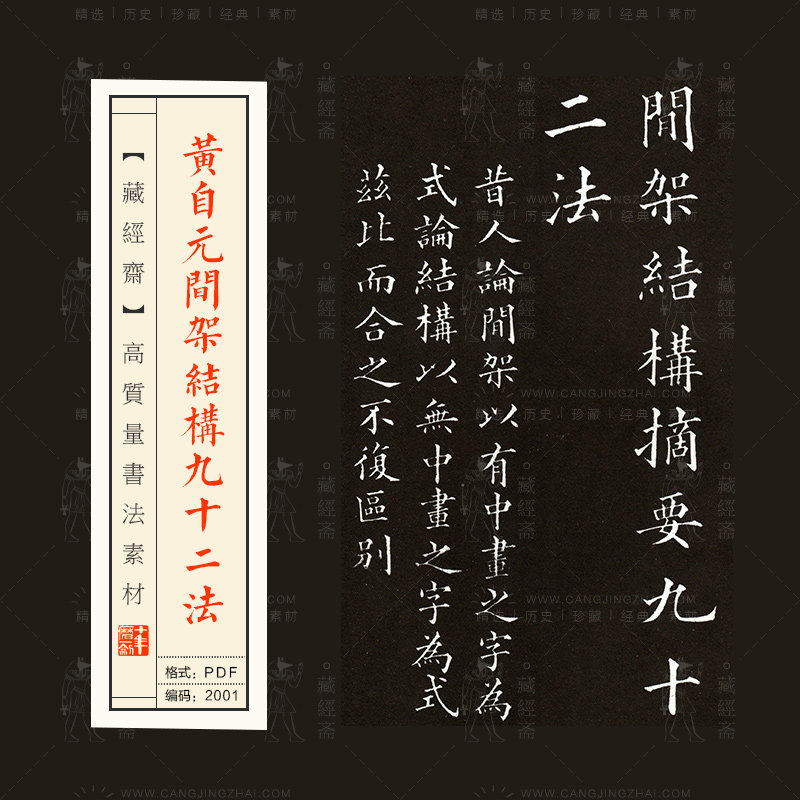 精选 | 历史 | 珍藏 | 经典 | 素材
間架結構摘要九十
二法
昔人論間架以有中畫之字為
式論結構以無中畫之字為式
茲比而合之不復區別
黃自元間架結構九十二法
【藏經齋】高質量書法素材
十年磨一劍
格式：PDF
编码：2001
藏經斋
WWW.CANGJINGZHAI.COM